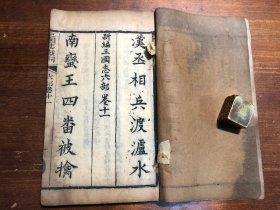 漢丞相兵渡瀘水
新編三國志六部卷十一
南蠻王四畨被擒